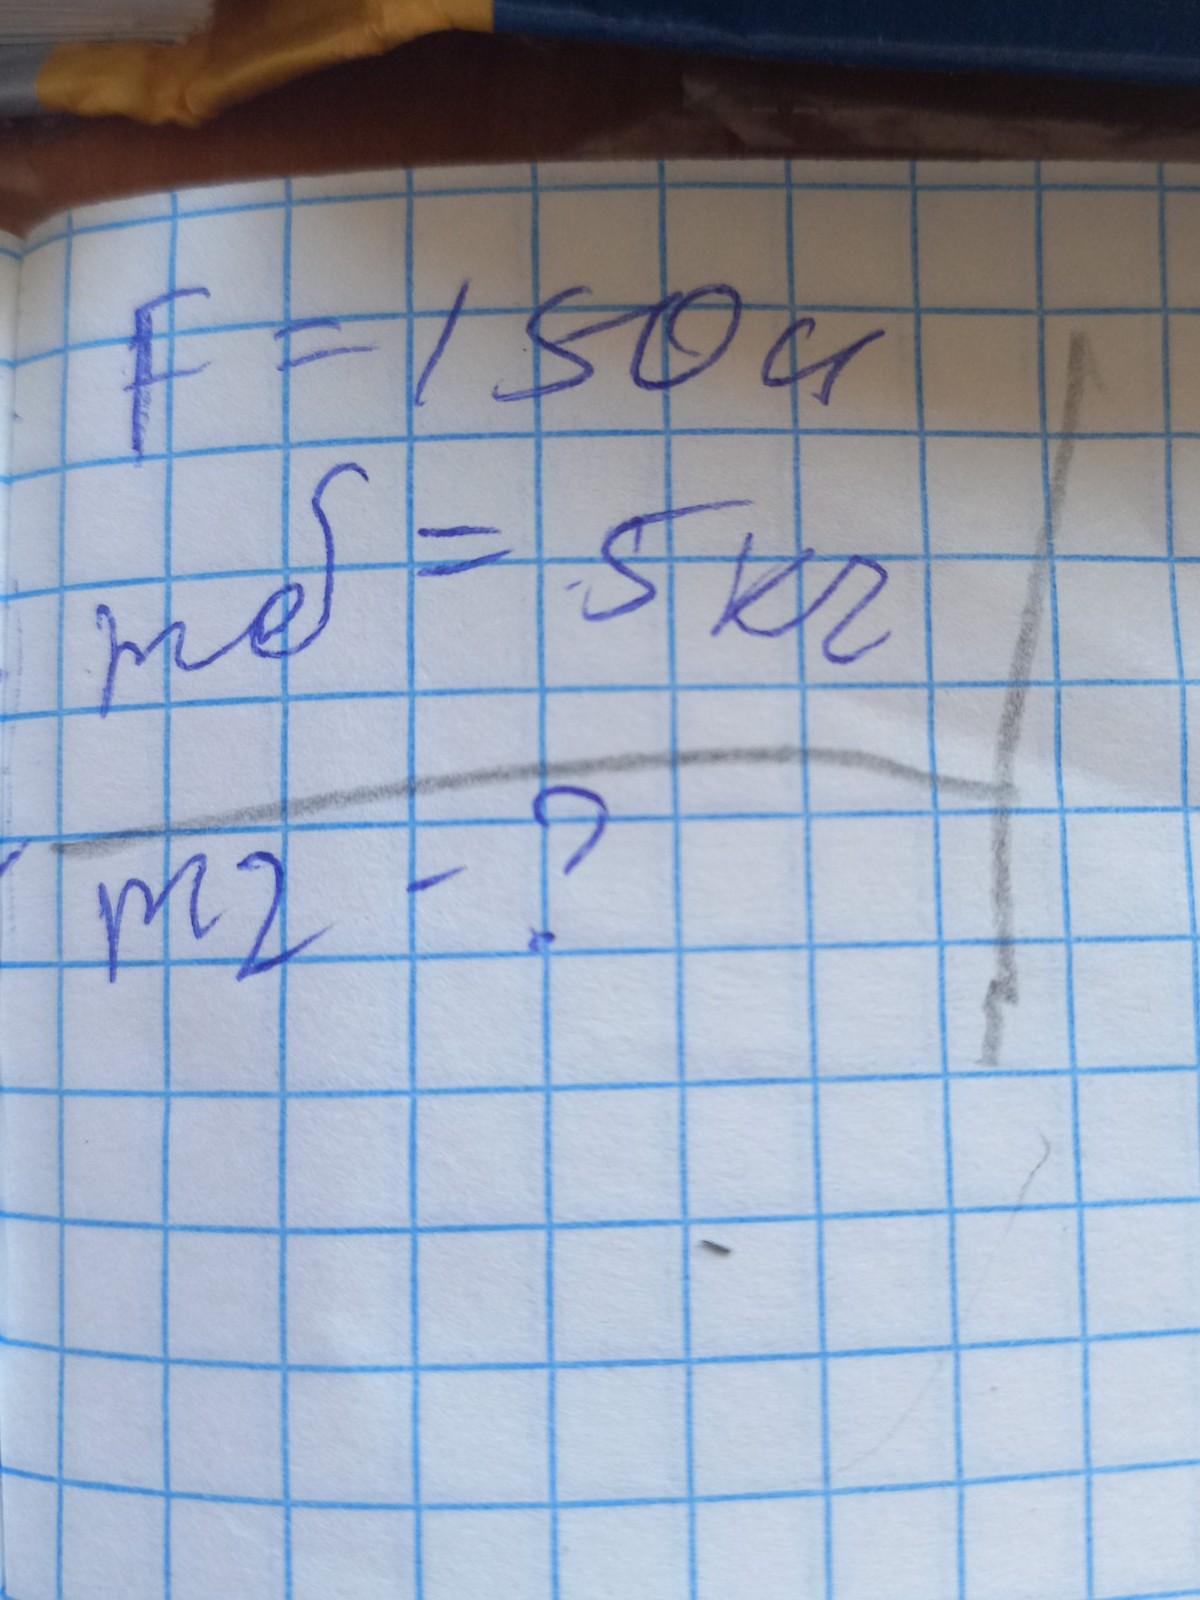 F = 150 н
mб = 5 кг
m2 - ?